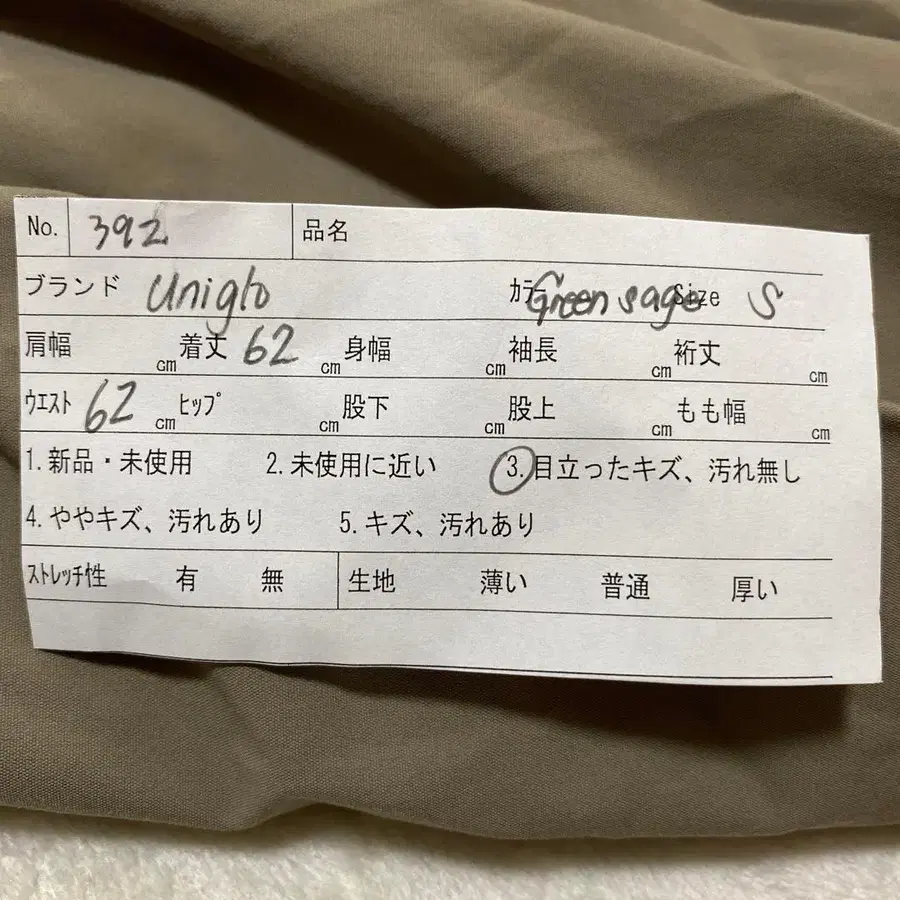 No. 392 品名
ブランド Uniqlo カラー Green sage Size S
肩幅 cm 着丈 62 cm 身幅 cm 袖長 cm 裄丈 cm
ウエスト 62 cm ヒップ cm 股下 cm 股上 cm もも幅 cm
1.新品・未使用 2.未使用に近い 3.目立ったキズ、汚れ無し
4.ややキズ、汚れあり 5.キズ、汚れあり
ストレッチ性 有 無 生地 薄い 普通 厚い